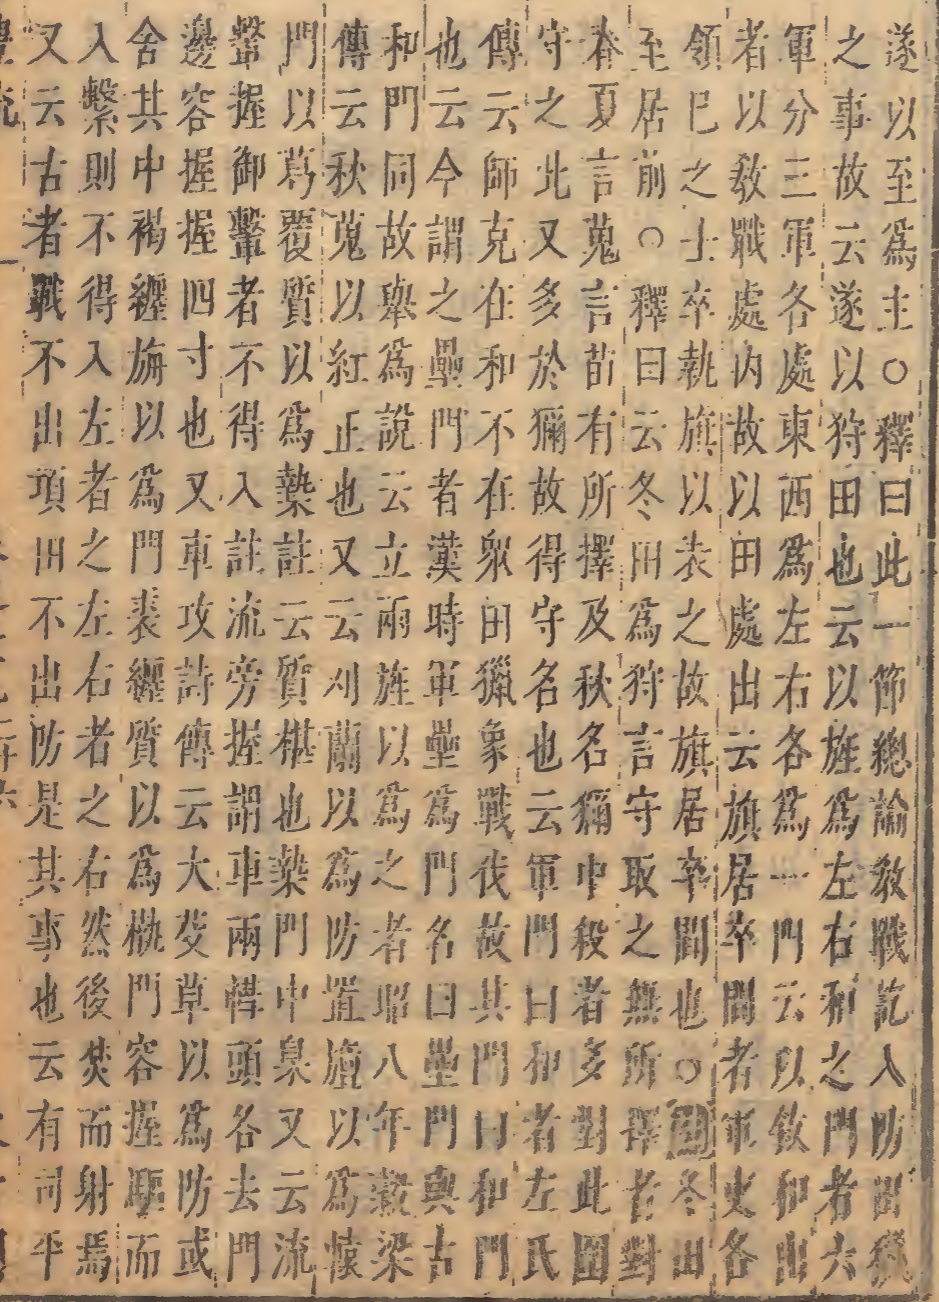 遂以至爲主○釋曰此一節總論敎戰訖入防田獵
之事故云遂以狩田也云以旌爲左右和之門者六
軍分三軍各處東西爲左右各爲一門云以敘和出
者以敎戰處內故以田處出云旗居卒間者軍吏各
領已之士卒執旗以表之故旗居卒間也○冬田
至居前○釋曰云冬田爲狩言守取之無所擇者對
春夏言蒐言苗有所擇及秋名獮中殺者多對此圍
守之此又多於獮故得守名也云軍門曰和者左氏
傳云師克在和不在衆田獵象戰伐故其門曰和門
也云今謂之壘門者漢時軍壘爲門名曰壘門與古
和門同故舉爲說云立兩旌以爲之者昭八年穀梁
傳云秋蒐以紅正也又云刈蘭以爲防置旜以爲轅
門以葛覆質以爲槷註云質椹也槷門中臬又云流
旁握御轚者不得入註流旁握謂車兩轊頭各去門
邊容握握四寸也又車攻詩傳云大芟草以爲防或
舍其中褐纏旃以爲門裘纏質以爲槸門容握驅而
入轚則不得入左者之左右者之右然後焚而射焉
又云古者戰不出頃田不出防是其事也云有司平